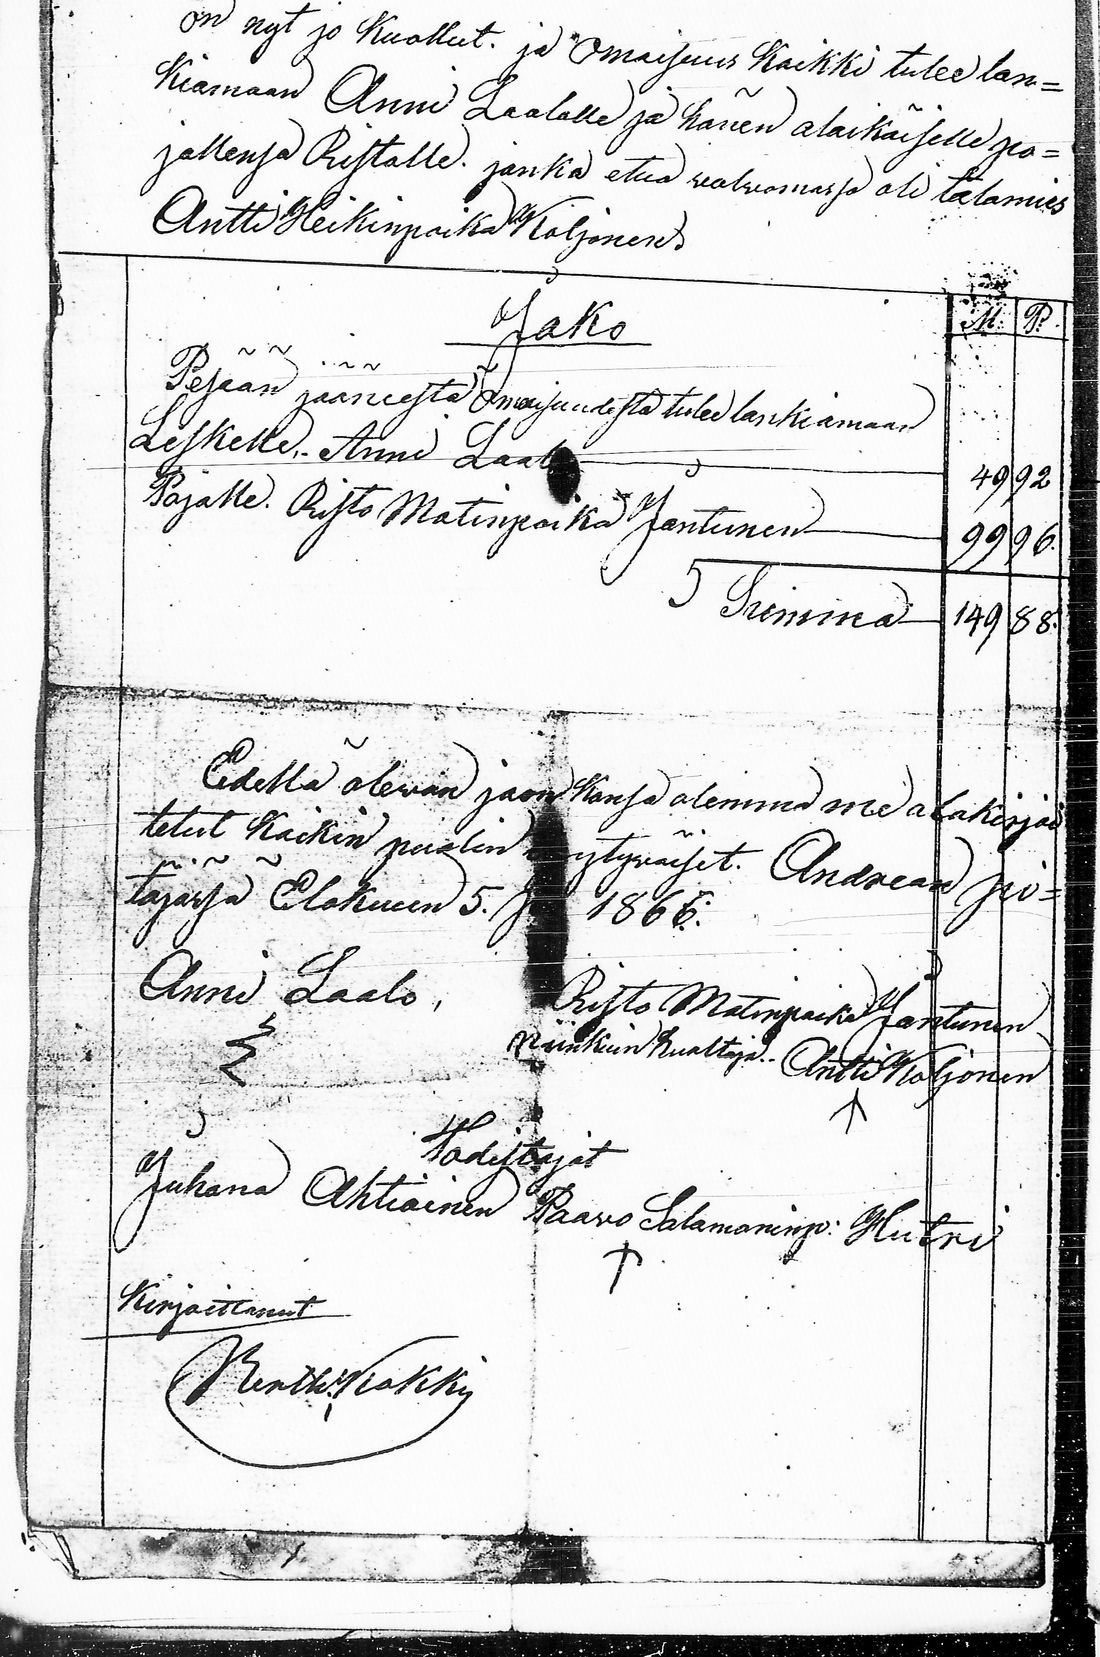 on nyt jo Kuollut. ja Omaisuus Kaikki tulee lan=
kiamaan Anni Laalolle ja hänen alaikäiselle po=
jallensa Ristolle. jonka etua walwomassa oli talamies
Antti Heikinpoika Koljonen.
Jako
M. P.
Pesään jääneestä Omaisuudesta tulee lankiamaan
Leskelle. Anni Laalo 49 92
Pojalle. Risto Matinpoika Jäntunen 99 96.
Summa 149 88.
Edellä olewan jaon Kansa olemma me alakirjoi
tetut Kaikin puolin tytywäiset. Andrean pi=
täjässä Elokuun 5. 1866.
Anni Laalo, Risto Matinpoika Jäntunen
niinkuin huoltaja.. Antti Koljonen
Todistajat
Juhana Ahtiainen Paawo Salamoninp: Hutri
Kirjoittanut
Kokki